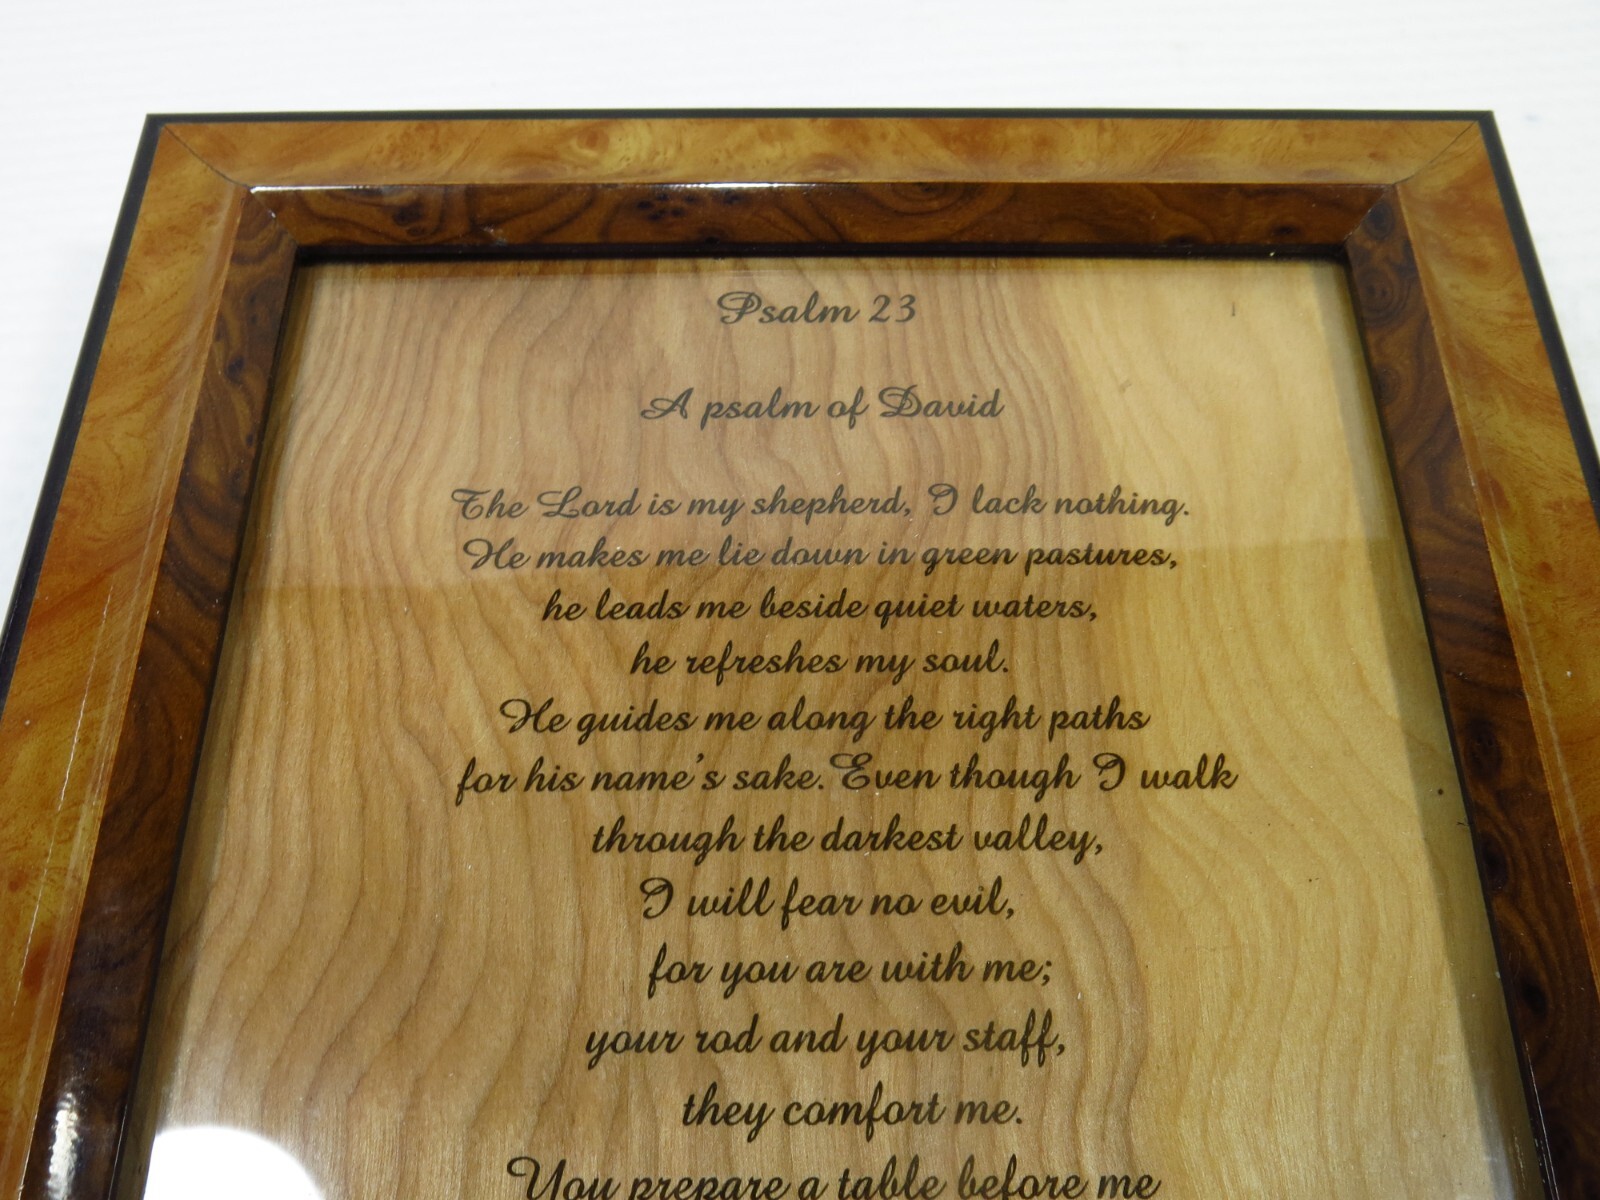 Psalm 23
A psalm of David
The Lord is my shepherd, I lack nothing.
He makes me lie down in green pastures,
he leads me beside quiet waters,
he refreshes my soul.
He guides me along the right paths
for his name's sake. Even though I walk
through the darkest valley,
I will fear no evil,
for you are with me;
your rod and your staff,
they comfort me.
You prepare a table before me